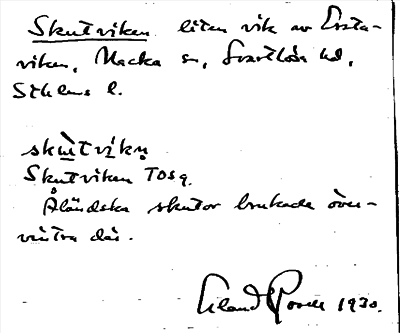 Skutviken liten vik av Ersta-
viken, Nacka sn, Svartlösa hd,
Sthlms l.
skùtvíkṇ
Skutviken TOSg.
Åländska skutor brukade över-
vintra där.
Roose 1930.